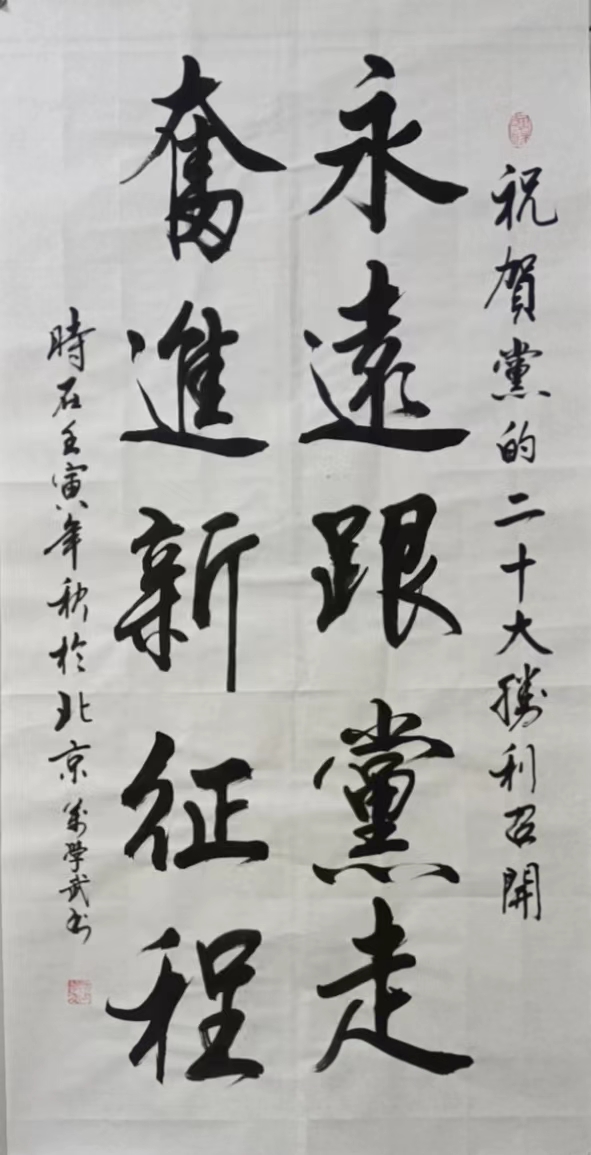 祝賀黨的二十大勝利召開
永遠跟黨走
奮進新征程
時在壬寅年秋於北京萬學武书